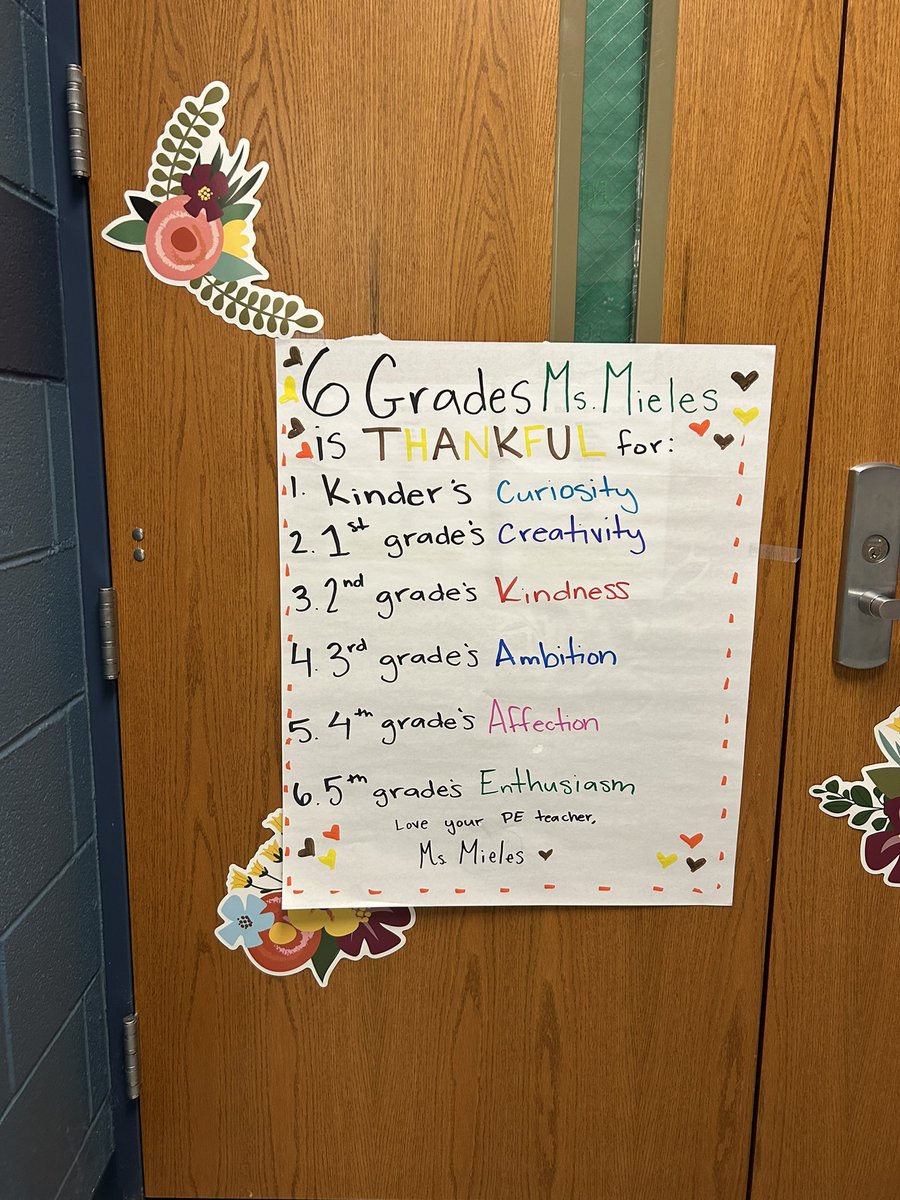 6 Grades Ms. Mieles
is THANKFUL for:
1. Kinder's Curiosity
2. 1st grade's Creativity
3. 2nd grade's Kindness
4. 3rd grade's Ambition
5. 4th grade's Affection
6. 5th grade's Enthusiasm
Love your PE teacher,
Ms. Mieles